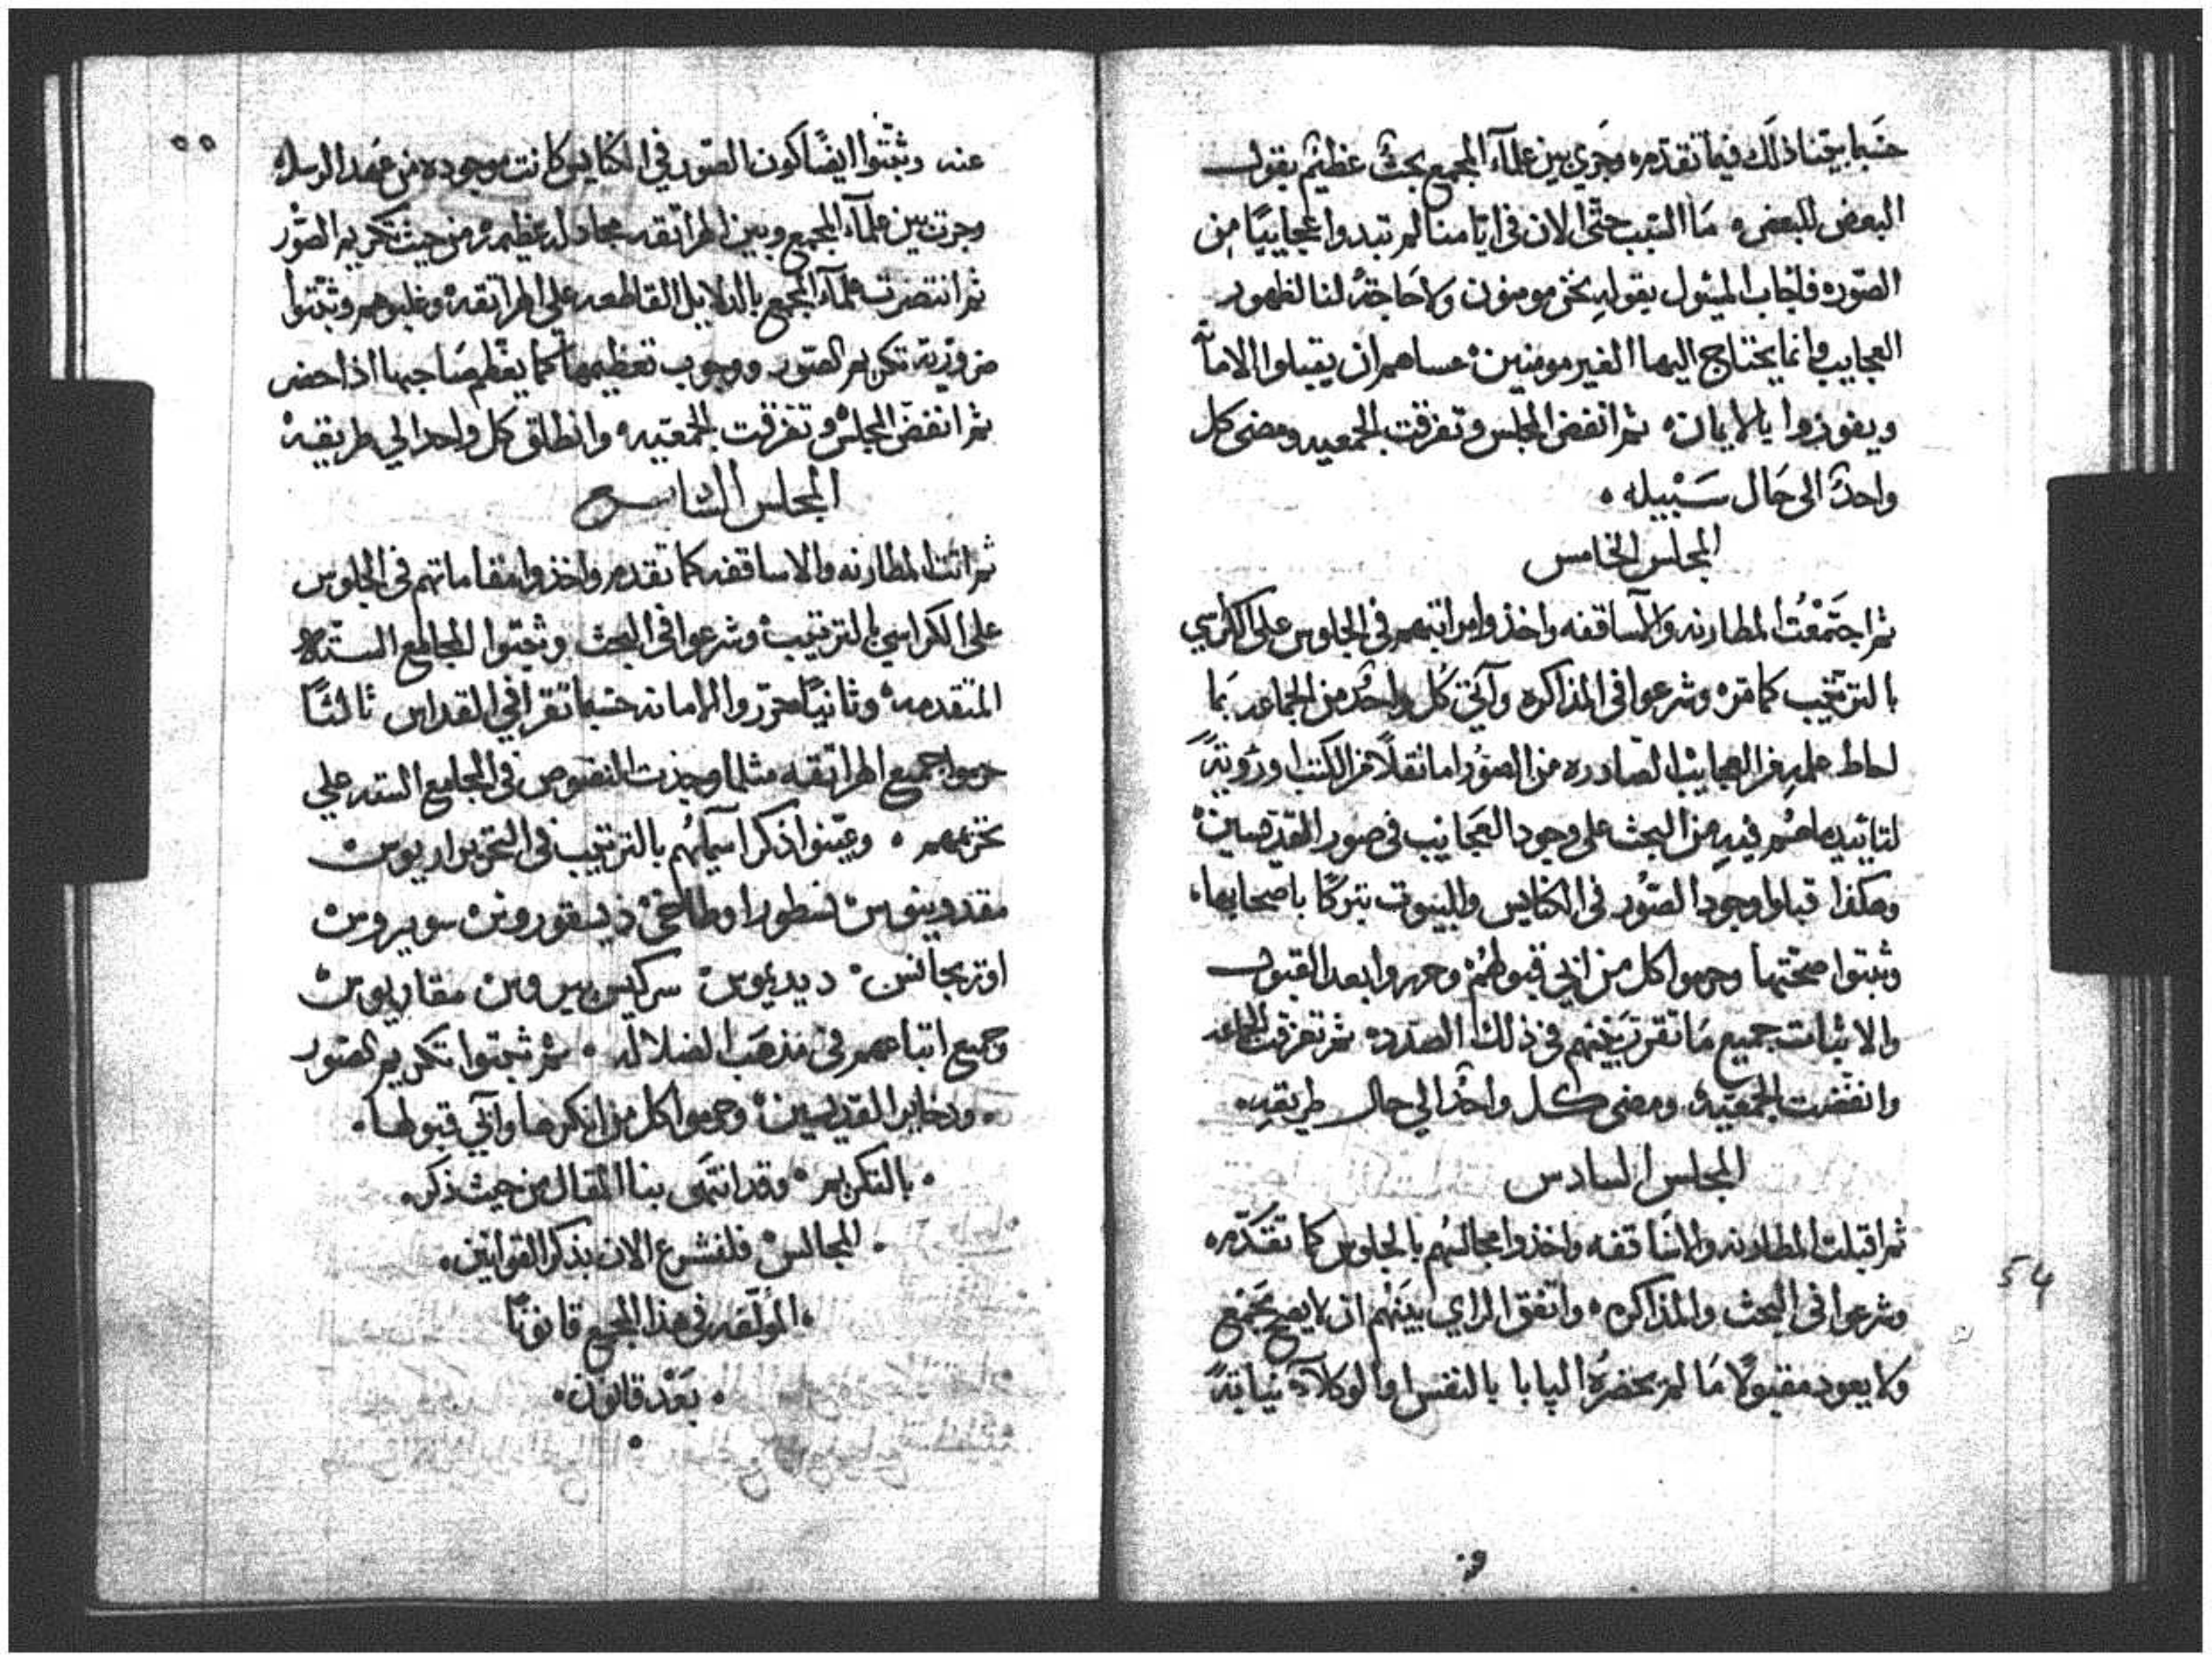 حسبما بيّنا ذلك فيما تقدم وجري بين علمآء المجمع بحثٌ عظيم بقول
البعض للبعض ما السبب حتّى الان في ايامنا لم تبدوا عجايبيًا من
الصوره فاجاب المسئول بقوله نحن مومنون ولا حاجة لنا لظهور
العجايب وانما يحتاج اليها الغير مومنين عساهم ان يقبلوا الامانه
ويفوزوا بالايمان ثم انفض المجلس وتفرقت الجمعيه ومضى كل
واحدٌ الى حال سَبيله
المجلس الخامس
ثم اجتمعت المطارنه والاساقفه واخذوا مراتبهم في الجلوس على الكراسي
بالترتيب كما مرّ وشرعوا في المذاكره وآتي كل واحدٌ من الجماعه بما
احاط علمه من العجايب الصادره من الصور اما نقلاً من الكتب او رؤيةً
لتاييد ما هُم فيه من البحث على وجود العجايب في صور القديسين
وهكذا قبلوا وجود الصوُر في الكنايس والبيوت تبركًا باصحابها
وثبتوا صحّتها وحرموا كل من ابي قبولهُم وحرروا بعد القبول
والاثبات جميع ما تقرر بينهم في ذلك الصدد ثم تفرقت الجماعه
وانفضت الجمعيه ومضى كل واحدٌ الي حال طريقه
المجلس السادس
ثم اقبلت المطارنه والاساقفه واخذوا مجالسُهم بالجلوس كما تقدّم
وشرعوا في البحث والمذاكره واتفق الراي بينهم ان لا يصح مجمع
ولا يعود مقبولاً ما لم يحضرهُ البابا بالنفس او الوكلاء نيابةً
54
و
٥٥
عنه وثبّتوا ايضًا كون الصور في الكنايس كانت موجوده من عهد الرسل
وجرت بين علمآء المجمع وبين الهراتقه مجادله عظيمة من حيث تكريم الصور
ثم انتصرت علمآء المجمع بالدلايل القاطعه على الهراتقه وغلبوهم وثبّتوا
ضروريّة تكريم الصور ووجوب تعظيمها كما يعظّم صاحبها اذا حضر
ثم انفضّ المجلس وتفرّقت الجمعيّه وانطلق كل واحد الي طريقه
المجلس السابع
ثم اتت المطارنه والاساقفه كما تقدم واخذوا مقاماتهم في الجلوس
على الكراسي بالترتيب وشرعوا في البحث وثبّتوا المجامع الستّه
المتقدمه وثانيًا حرّروا الامانه حسبما تقرا في القداس ثالثًا
حرموا جميع الهراتقه مثلما وجدت النصوص في المجامع السته علي
تحريمهم وعيّنوا ذكر اسمآئهم بالترتيب في التحرير اريوس
مقدونيوس نسطور اوطاخي ذيسقوروس سويروس
اوريجانس ديديموس سركيس بيروس مقاريوس
وجميع اتباعهم في مذهب الضلاله ثم ثبتوا تكريم الصور
وذخاير القديسين وحرموا كل من انكرها وآبي قبولها
بالتكريم وقد انتهى بنا المقال من حيث ذكر
المجالس فلنشرع الان بذكر القوانين
المولّفه في هذا المجمع قانونًا
بَعْد قانون